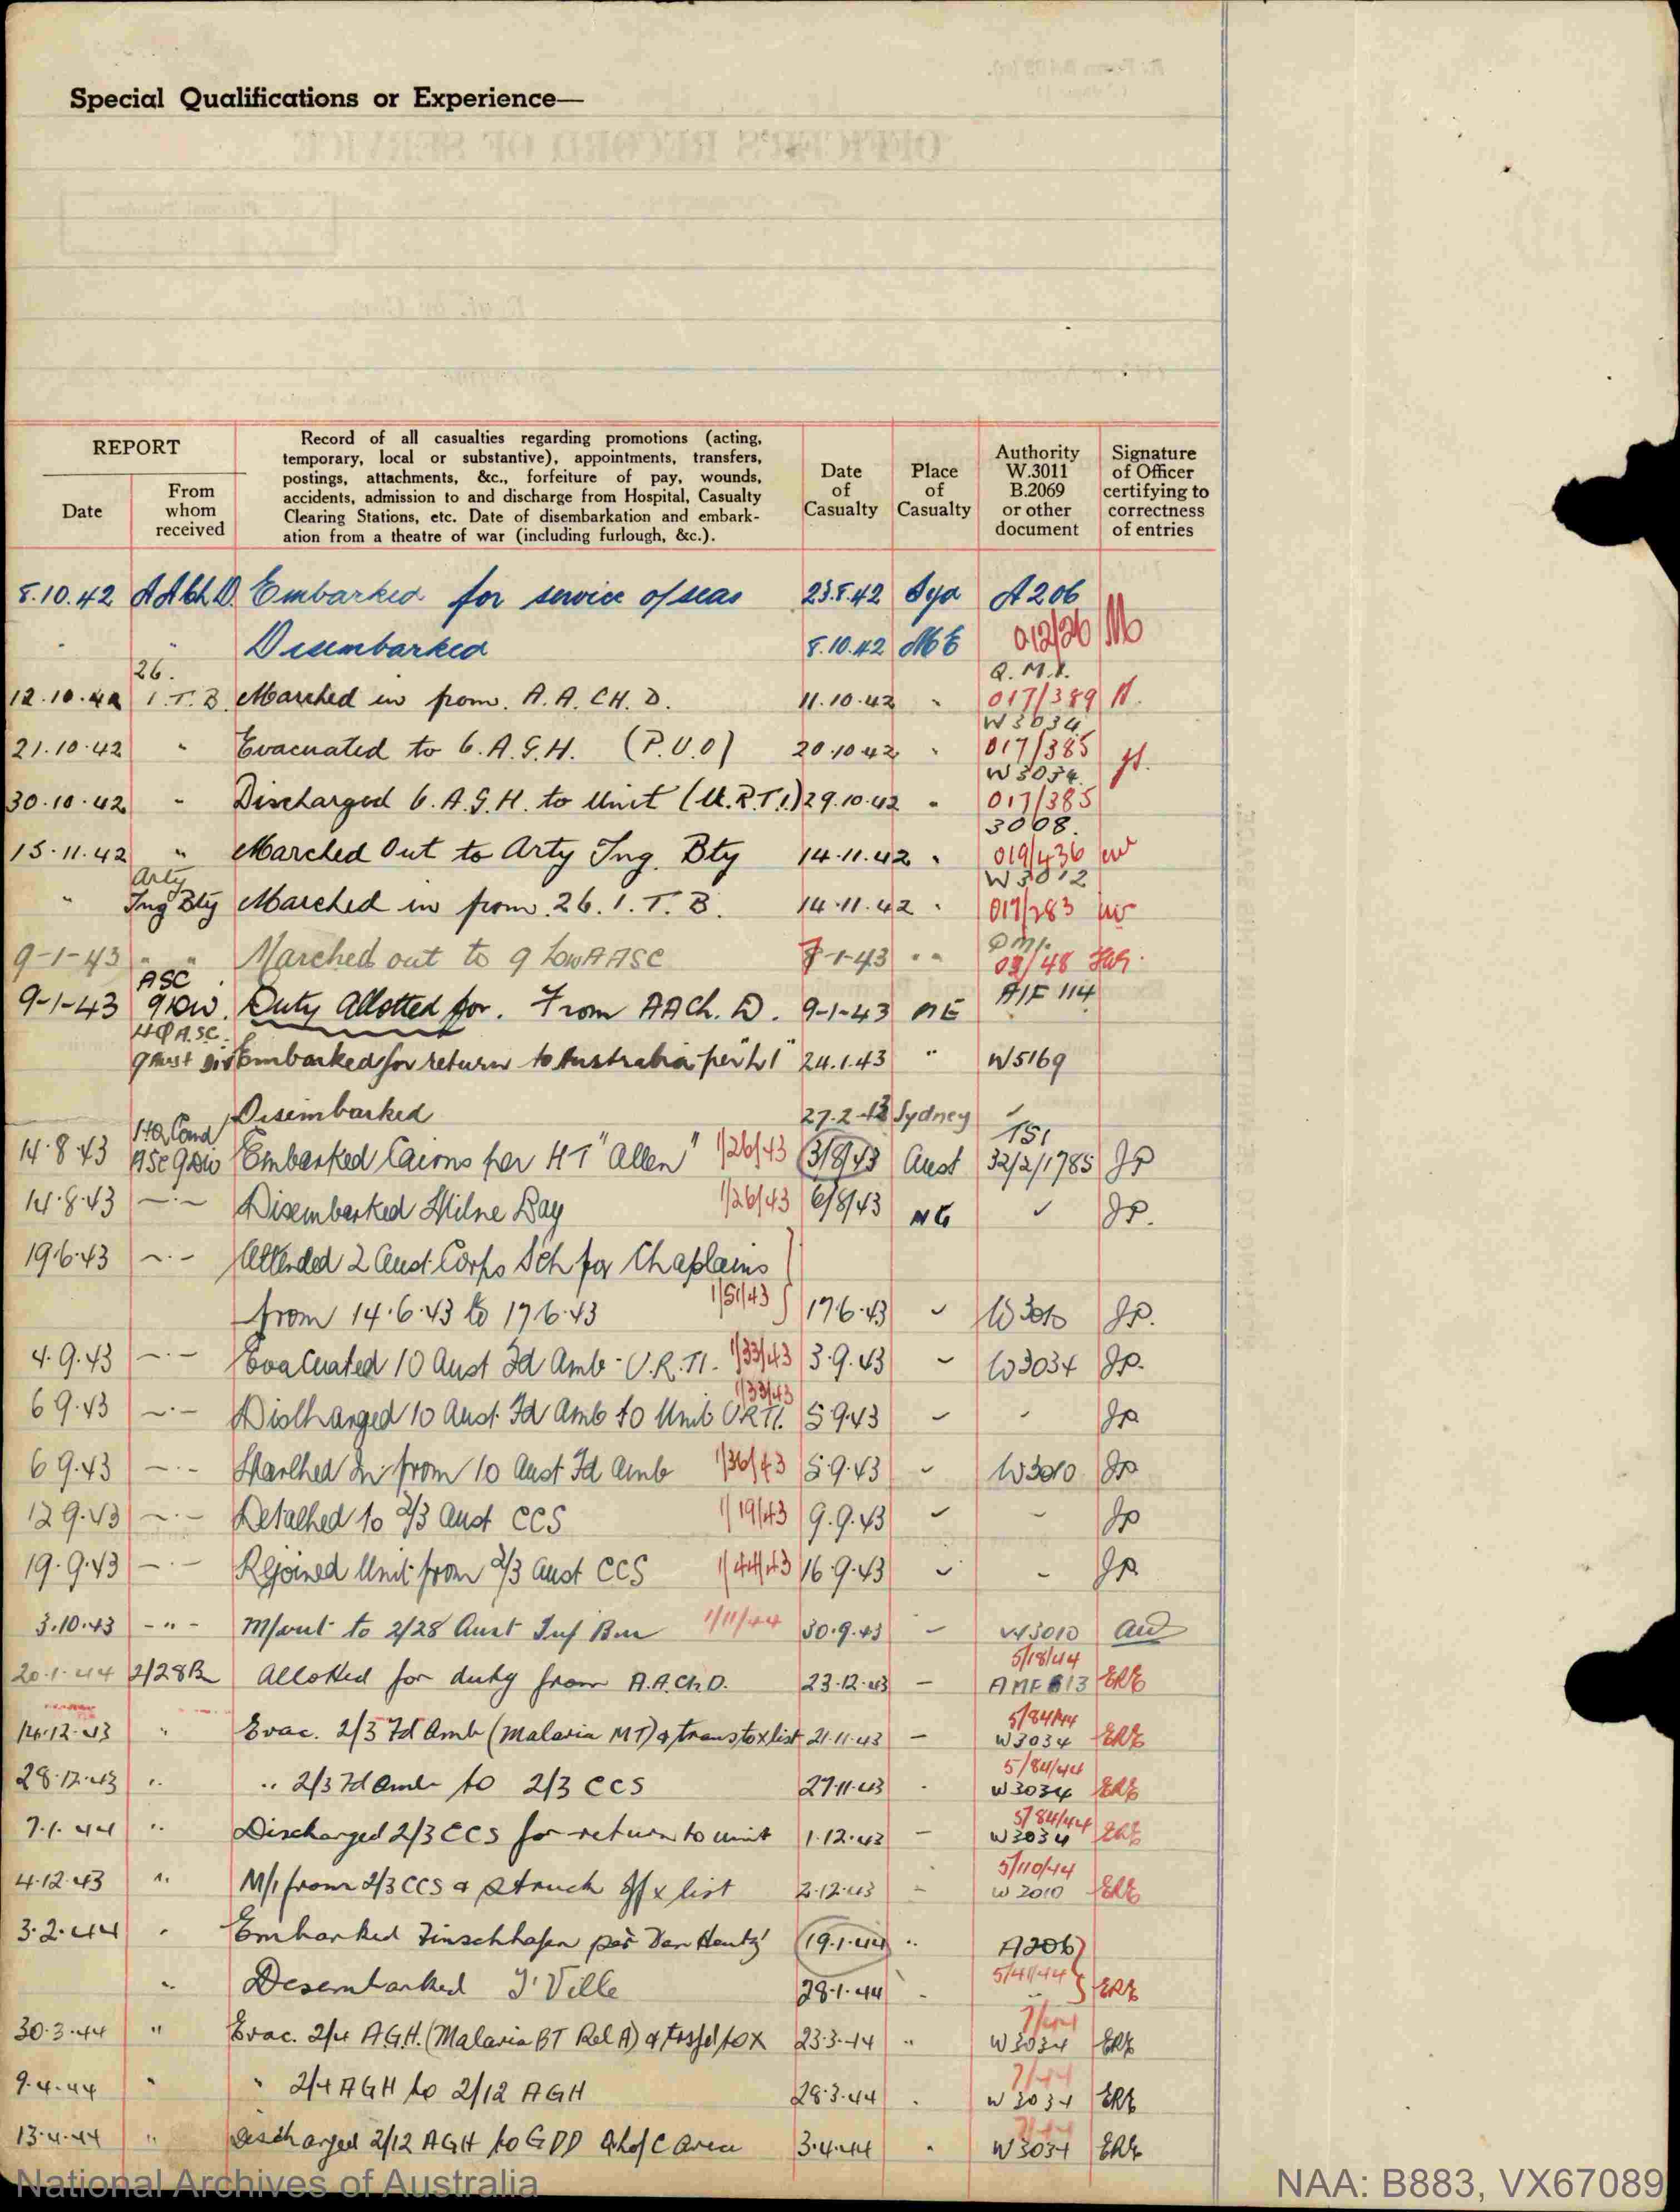 Special Qualifications or Experience—
REPORT
Date
From whom received
Record of all casualties regarding promotions (acting,
temporary, local or substantive), appointments, transfers,
postings, attachments, &c., forfeiture of pay, wounds,
accidents, admission to and discharge from Hospital, Casualty
Clearing Stations, etc. Date of disembarkation and embark-
ation from a theatre of war (including furlough, &c.).
Date of Casualty
Place of Casualty
Authority W.3011 B.2069 or other document
Signature of Officer certifying to correctness of entries
8.10.42 A A Ch D. Embarked for service o/seas 23.8.42 Syd A206
" " Disembarked 8.10.42 ME 012/26
26. Q.M.I.
12.10.42 I.T.B. Marched in from. A.A.CH.D. 11.10.42 " 017/389
W3034
21.10.42 " Evacuated to 6.A.G.H. (P.U.O) 20.10.42 " 017/385
W3034
30.10.42 " Discharged 6.A.G.H. to Unit (U.R.T.I.) 29.10.42 " 017/385
3008.
15.11.42 " Marched Out to Arty Tng. Bty 14.11.42 " 019/436
Arty W3012
" Tng Bty Marched in from. 26.I.T.B. 14.11.42 " 017/283
9-1-43 " " Marched out to 9 HQ AASC 7-1-43 " " 02/48
ASC
9-1-43 9 Div. Duty Allotted for. From AACh.D. 9-1-43 ME AIF 114
HQ ASC.
9 Aust Div Embarked for return to Australia per 24.1.43 " W5169
Disembarked 27.2.43 Sydney ✓
HQ Comd 151
14.8.43 ASC 9 Div Embarked Cairns per HT "Allen" 1/26/43 3/8/43 Aust 32/2/1785 JP
14.8.43 –"– Disembarked Milne Bay 1/26/43 6/8/43 NG ✓ JP.
19.6.43 –"– Attended 2 Aust Corps Sch for Chaplains
from 14.6.43 to 17.6.43 1/51/43 17.6.43 ✓ W3010 JP.
4.9.43 –"– Evacuated 10 Aust Fd Amb - U.R.TI. 1/33/43 3.9.43 ✓ W3034 JP.
6.9.43 –"– Discharged 10 Aust. Fd Amb to Unit URTI. 1/33/43 5.9.43 ✓ " JP
6.9.43 –"– Marched In from 10 Aust Fd Amb 1/36/43 5.9.43 ✓ W3010 JP
12.9.43 –"– Detached to 2/3 Aust CCS 1/19/43 9.9.43 ✓ " JP
19.9.43 –"– Rejoined Unit from 2/3 Aust CCS 1/44/43 16.9.43 ✓ " JP.
3.10.43 –"– M/out to 2/28 Aust Inf Bn 1/11/44 30.9.43 – W3010
5/18/44
20.1.44 2/28Bn Allotted for duty from A.A.Ch.D. 23.12.43 – AMF 613 ERE
5/84/44
14.12.43 " Evac. 2/3 Fd Amb (Malaria MT) & trans to x list 21.11.43 – W3034 ERE
5/84/44
28.12.43 " " 2/3 Fd Amb to 2/3 CCS 27.11.43 " W3034 ERE
5/84/44
7.1.44 " Discharged 2/3 CCS for return to unit 1.12.43 – W3034 ERE
5/110/44
4.12.43 " M/i from 2/3 CCS & struck off x list 2.12.43 – W3010 ERE
3.2.44 " Embarked Finschhafen per Van Heutz 19.1.44 " A206
5/41/44
" Desembarked T'Ville 28.1.44 " " ERE
30.3.44 " Evac. 2/4 A.G.H. (Malaria BT Rel A) & tosfd to X 23.3.44 " W3034 ERE
7/44
9.4.44 " " 2/4 AGH to 2/12 AGH 28.3.44 " W3034 ERE
13.4.44 " Discharged 2/12 AGH to GDD C area 3.4.44 " W3034 ERE
National Archives of Australia
NAA: B883, VX67089